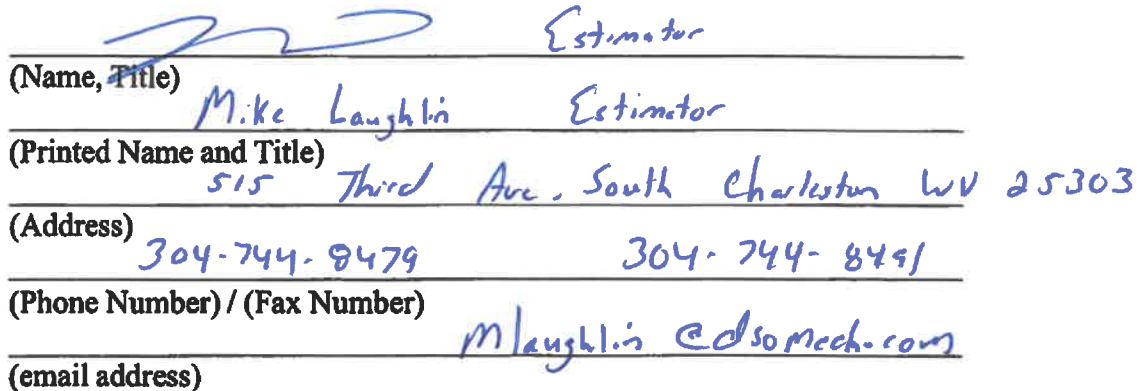 Estimator
(Name, Title)
Mike Laughlin Estimator
(Printed Name and Title)
515 Third Ave. South Charleston WV 25303
(Address)
304-744-8479 304-744-8491
(Phone Number) / (Fax Number)
mlaughlin@dsomech.com
(email address)